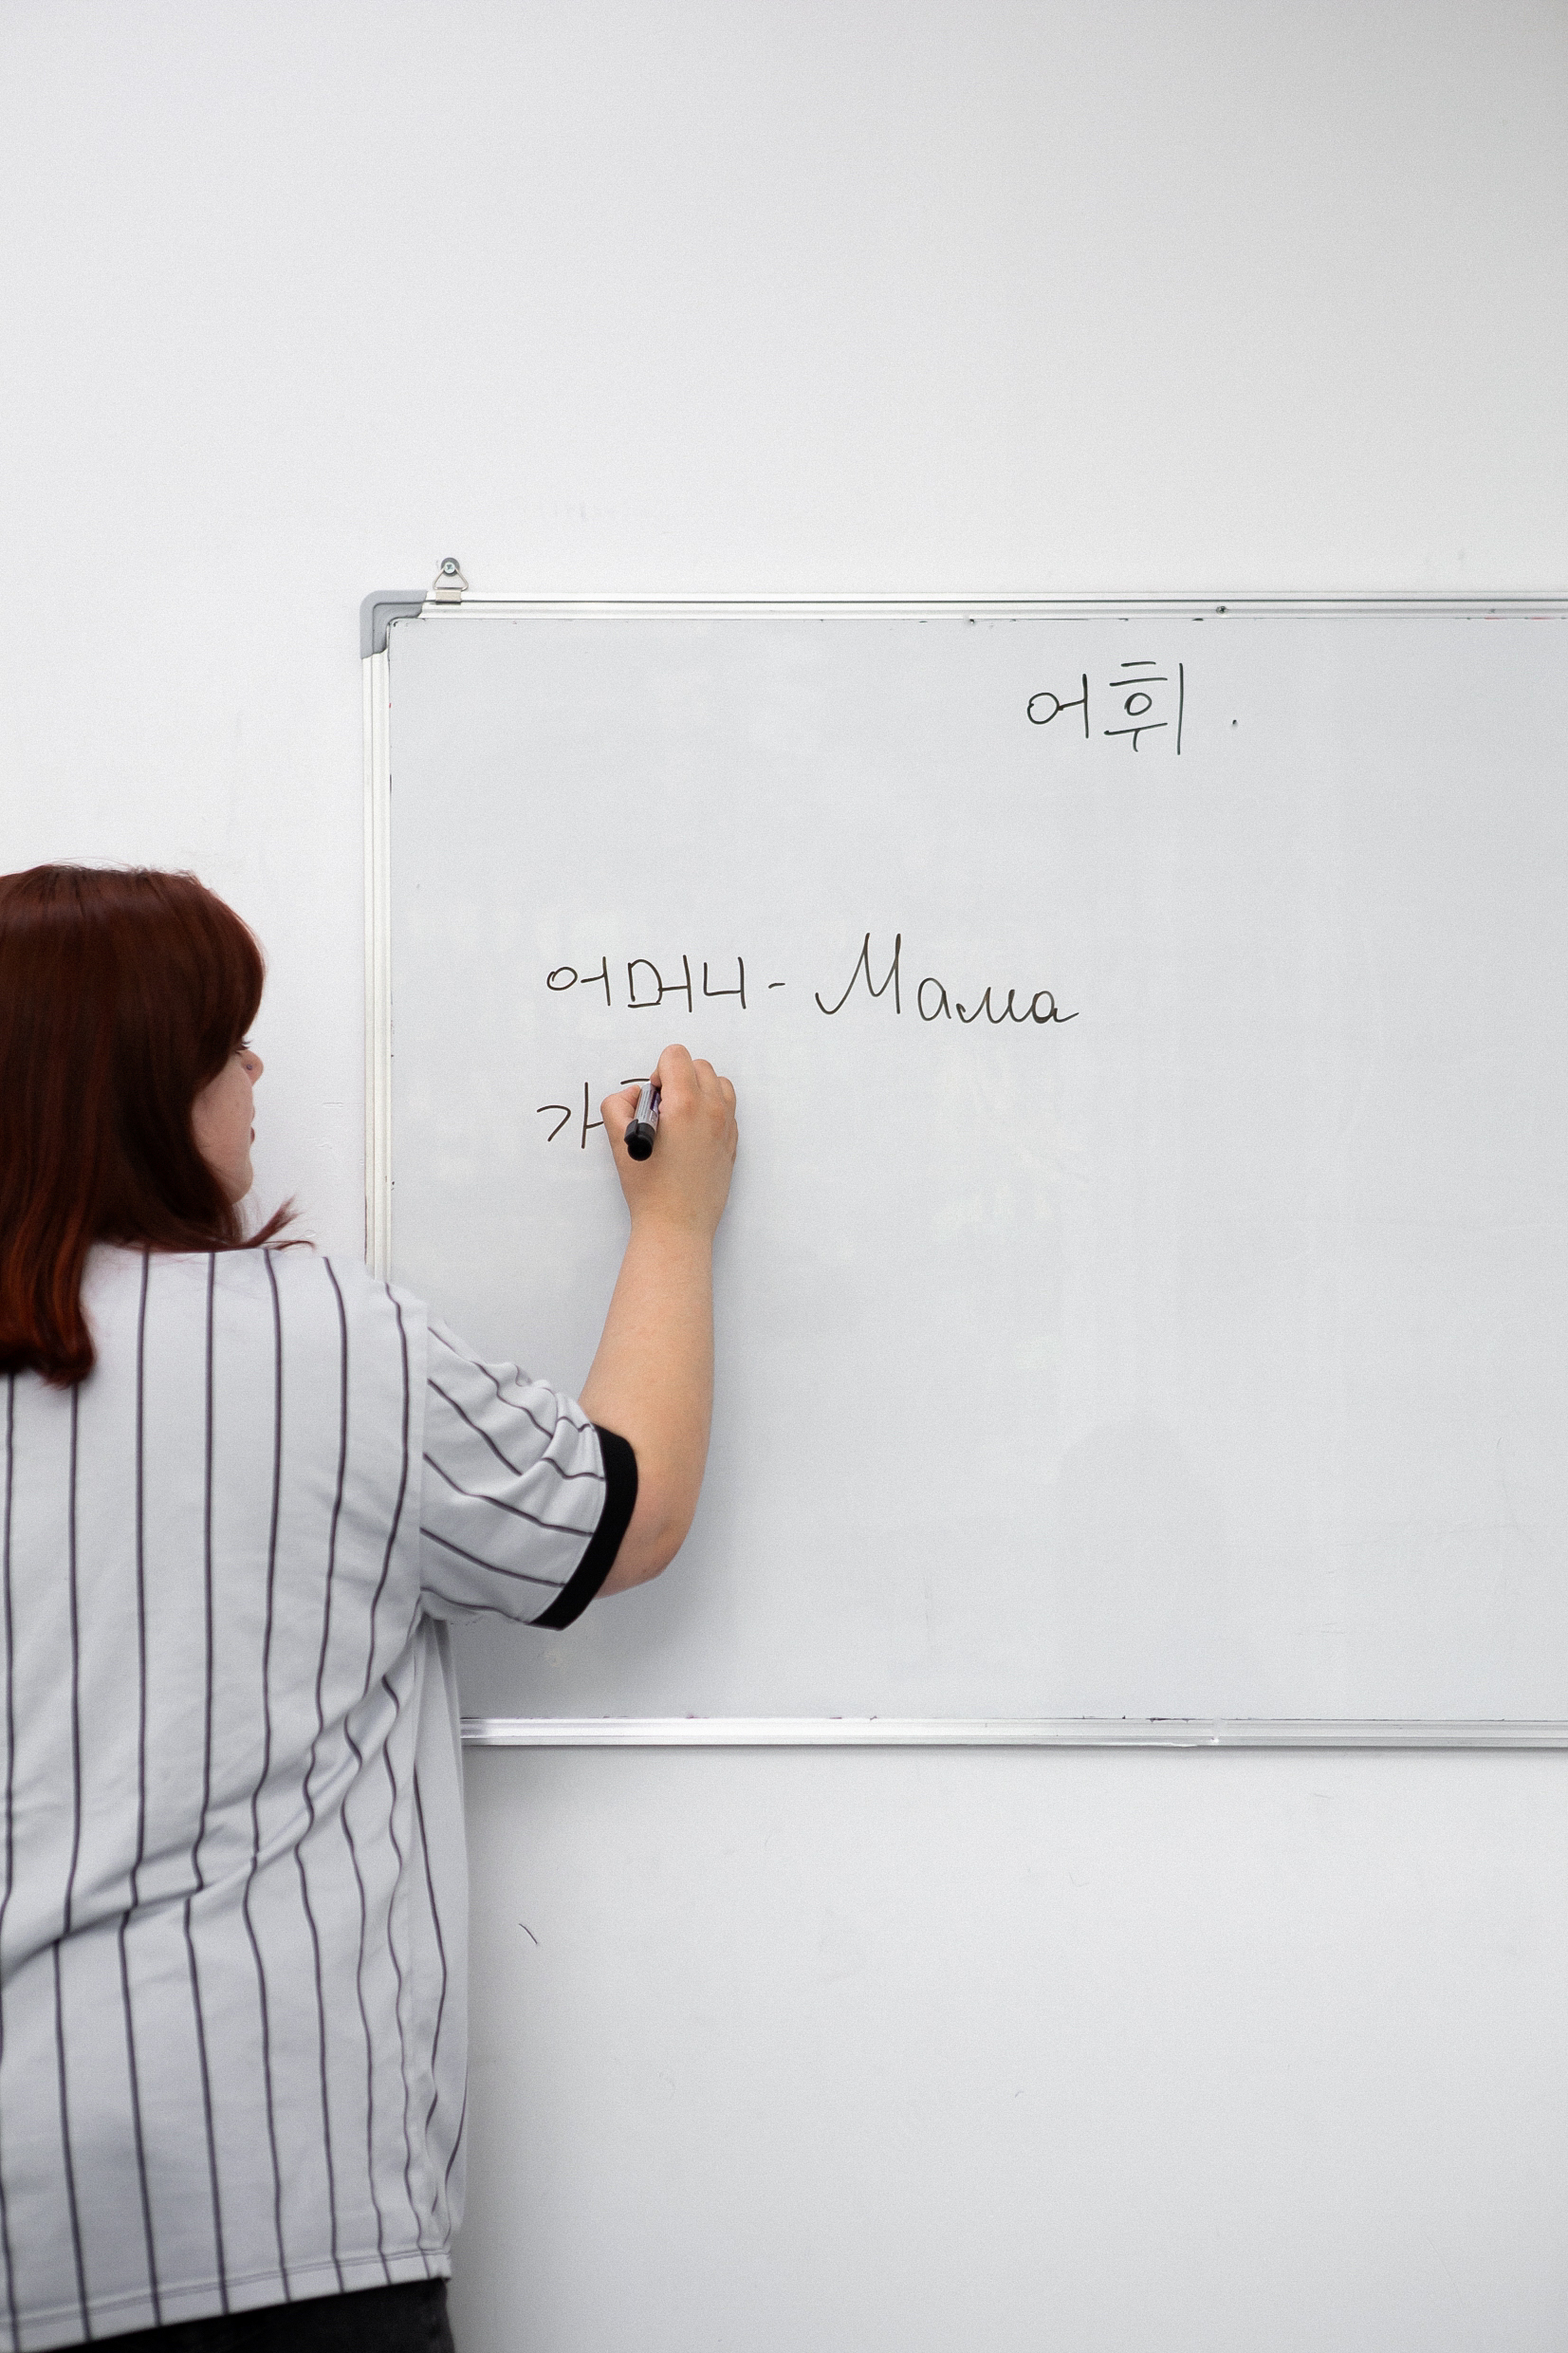 어휘.
어머니 - Мама
가